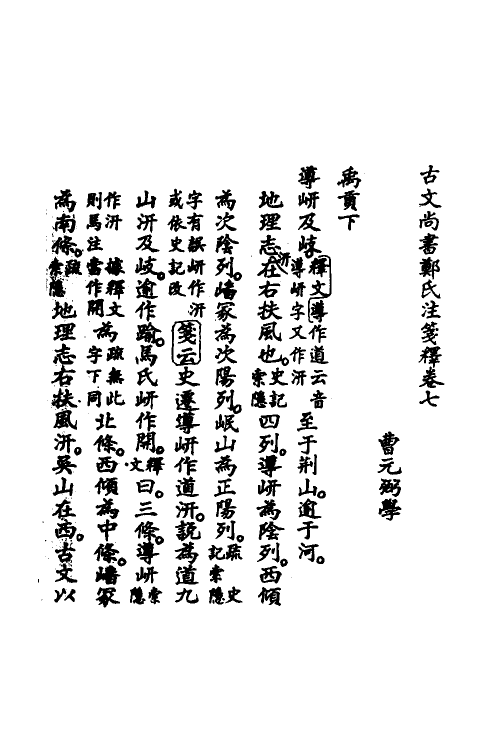 古文尚書鄭氏注箋釋卷七
曹元弼學
禹貢下
導岍及岐。釋文導作道云音導岍字又作汧至于荊山。逾于河。
地理志汧在右扶風也。史記索隱四列。導岍為陰列。西傾
為次陰列。嶓冢為次陽列。岷山為正陽列。疏史記索隱
字有誤岍作汧或依史記改箋云史遷導岍作道汧。説為道九
山汧及岐。逾作踰。馬氏岍作開。釋文曰。三條。導岍索隱
作汧則馬注據釋文當作開為疏無此字下同北條。西傾為中條。嶓冢
為南條。疏索隱地理志右扶風汧。吳山在西。古文以